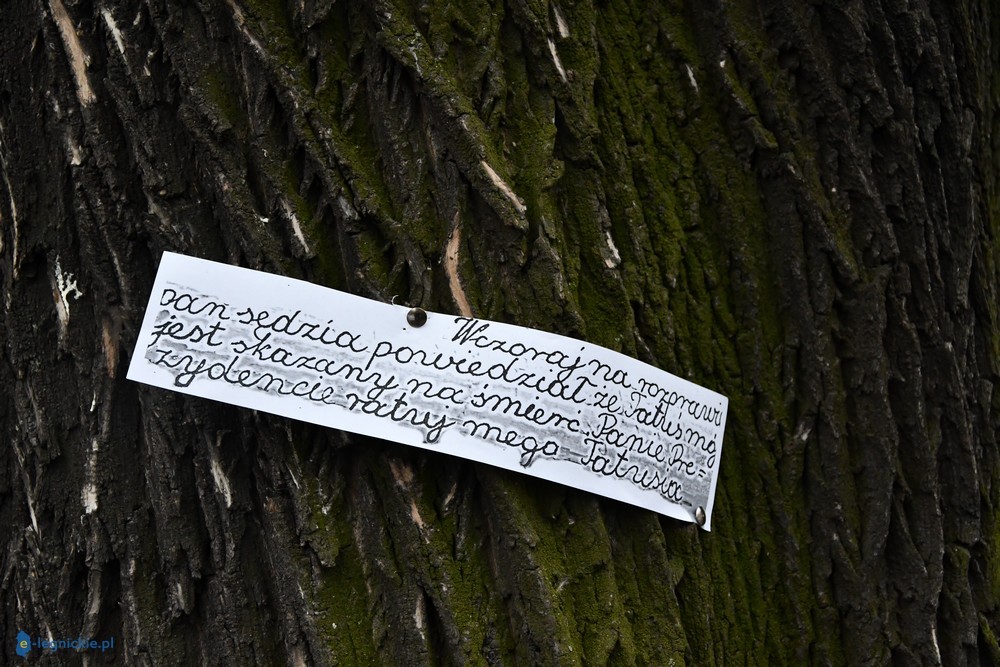 Wczoraj na rozprawi
pan sędzia powiedział że Tatuś mój
jest skazany na śmierć. Panie Pre=
zydencie ratuj mego Tatusia
e-legnickie.pl